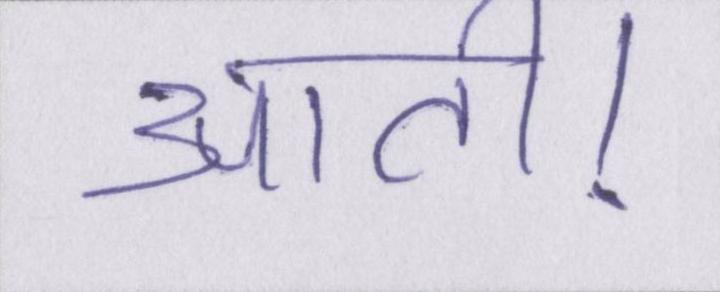 आती!